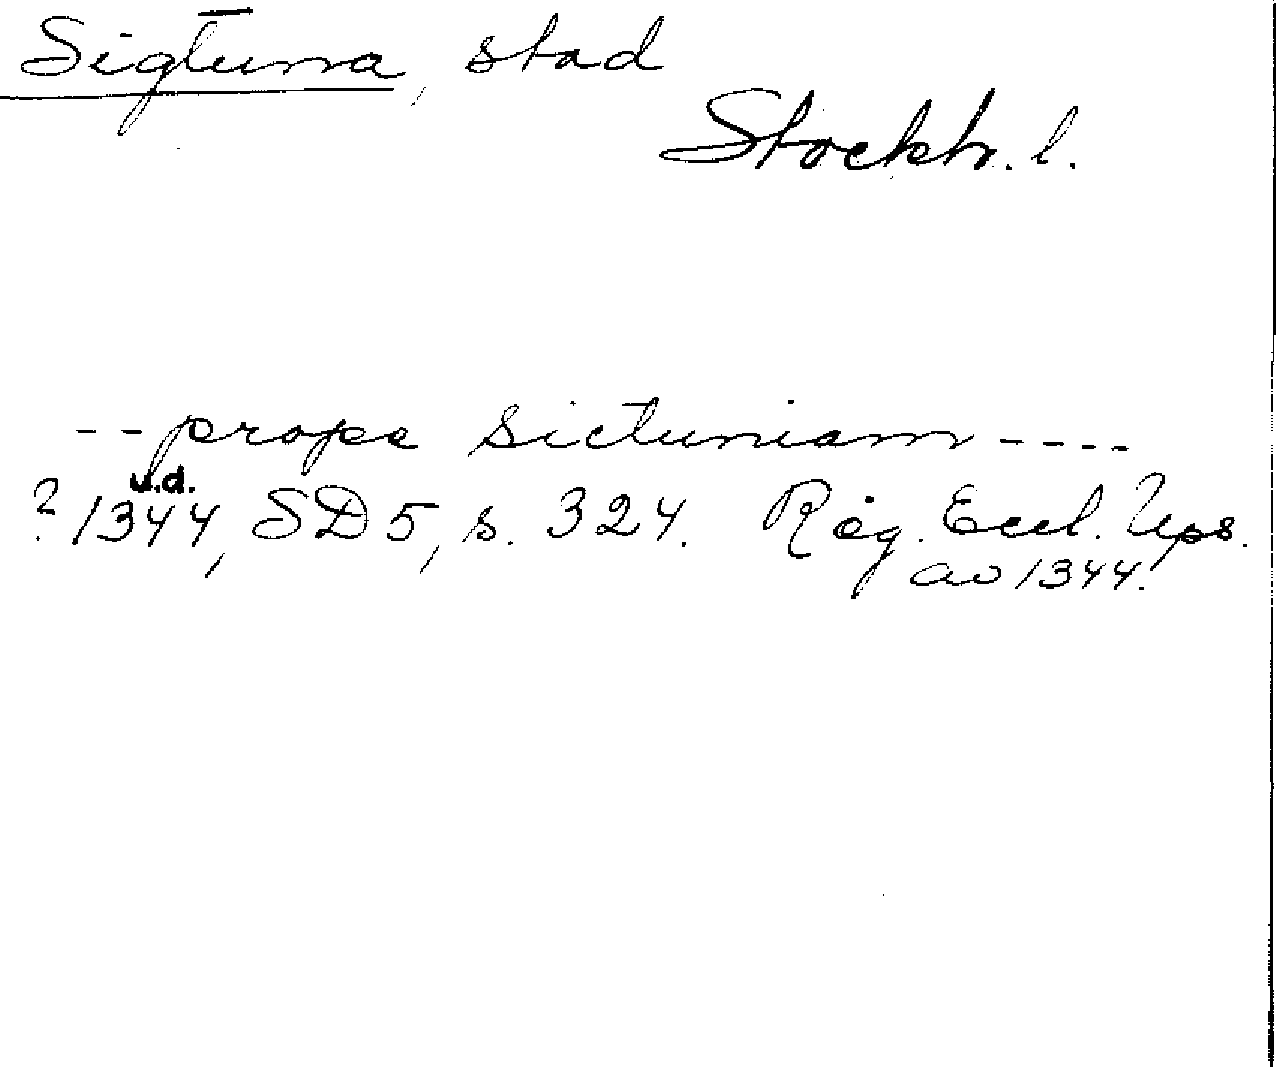 Sigtuna, stad
Stockh. l.
-- prope sictuniam ----
u.d.
? 1344, SD 5, s. 324. Reg. Eccl. Ups.
av 1344.